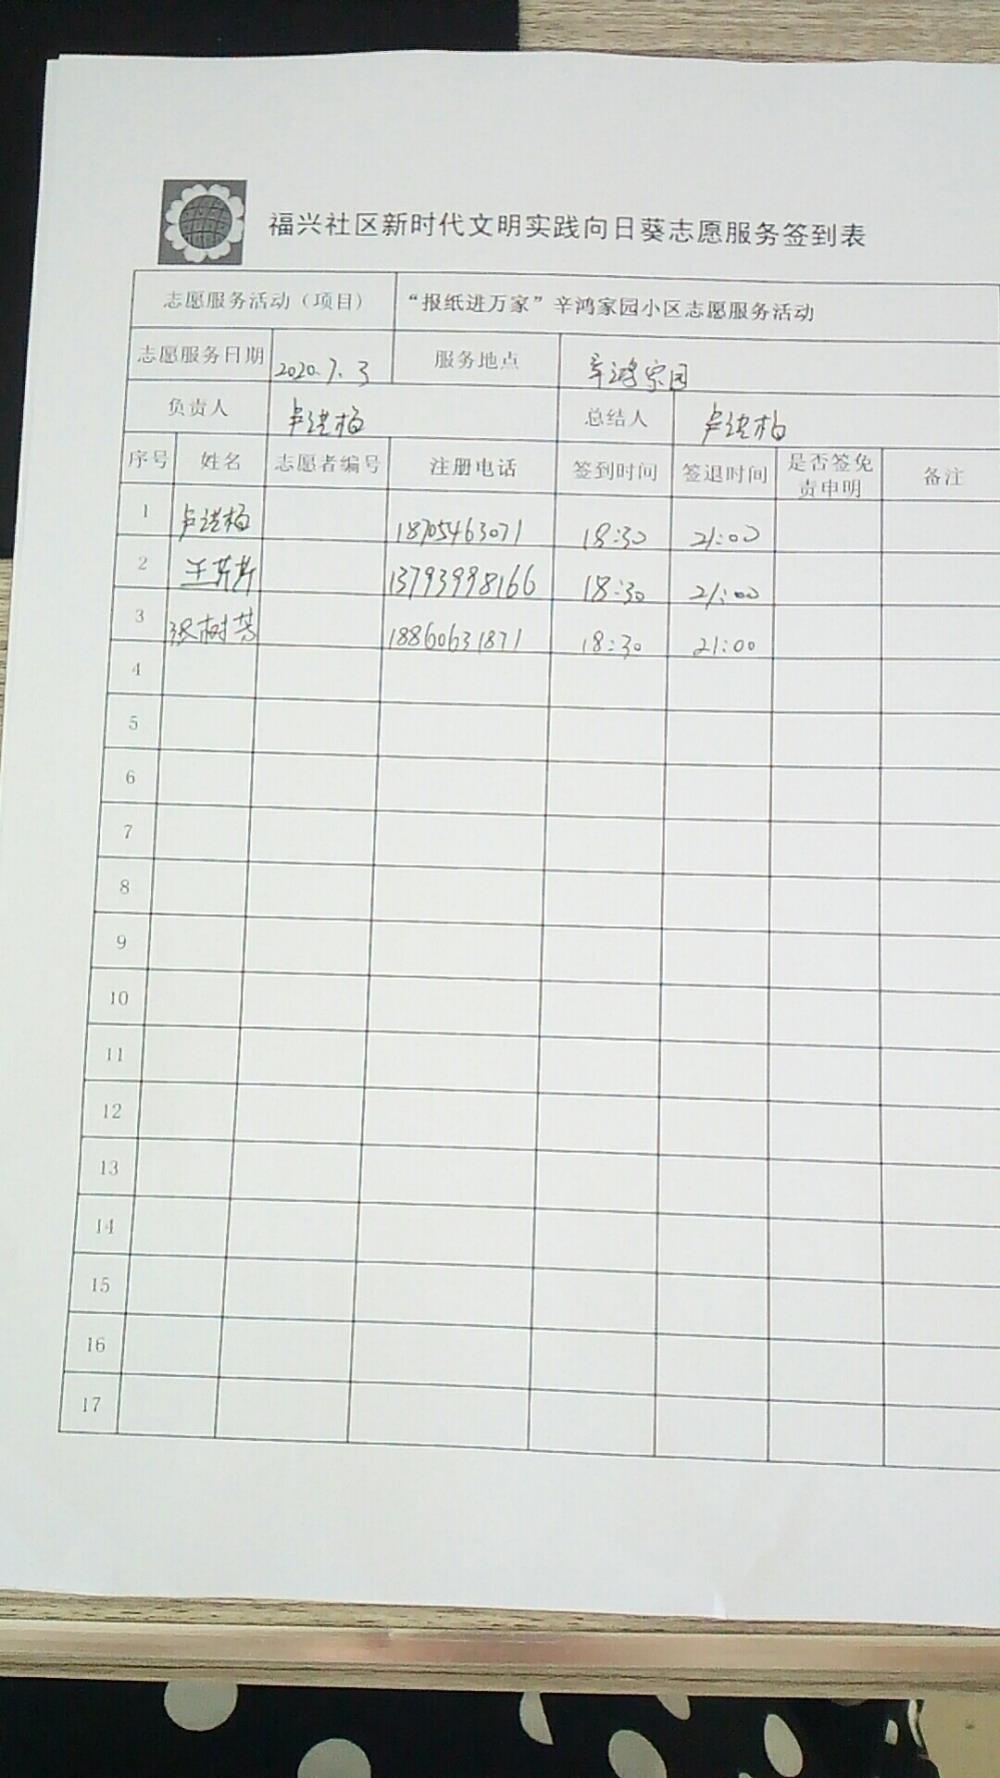 福兴社区新时代文明实践向日葵志愿服务签到表
志愿服务活动（项目） “报纸进万家”辛鸿家园小区志愿服务活动
志愿服务日期 2020.7.3 服务地点 辛鸿家园
负责人 总结人
序号 姓名 志愿者编号 注册电话 签到时间 签退时间 是否签免责申明 备注
1 18705463071 18:30 21:00
2 王芹芹 13793998166 18:30 21:00
3 张树芳 18860631871 18:30 21:00
4
5
6
7
8
9
10
11
12
13
14
15
16
17